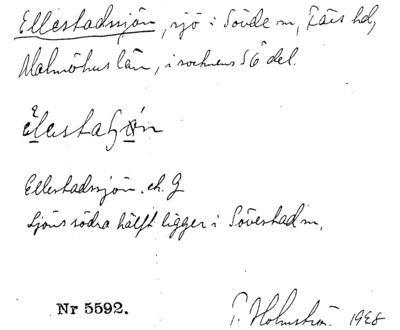 Ellestadssjön, sjö i Sövde sn, Färs hd,
Malmöhus län, i socknens SÖ del.
Ellestadssjön. ek. G
Sjöns södra hälft ligger i Sövestad sn.
Nr 5592.
Holmström 1928